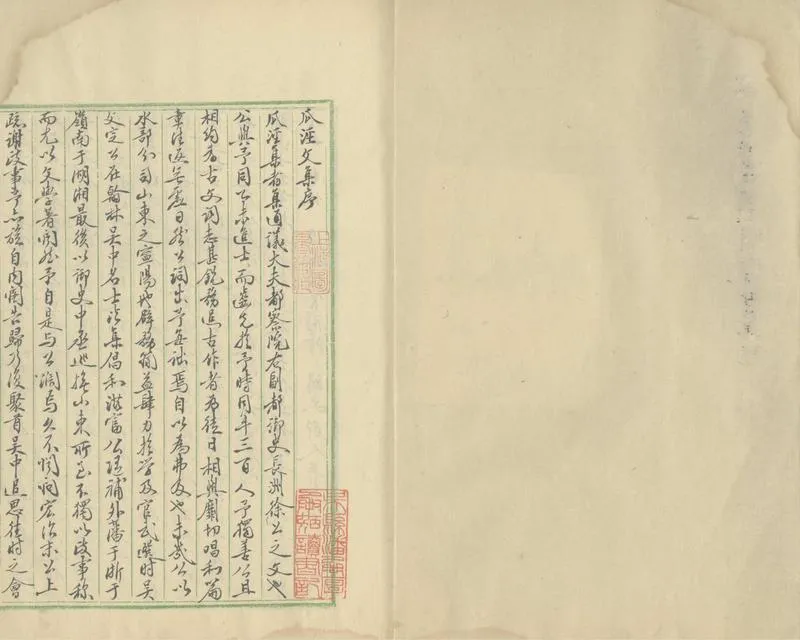 瓜涇文集序
瓜涇集者集通議大夫都察院右副都御史長洲徐公之文也
公與予同乙未進士而齒先於予時同年三百人予獨善公且
相約為古文詞志甚銳務追古作者為徒日相與劘切唱和篇
重往返無虛日然公詞出予每詘焉自以為弗及也未幾公以
水部分司山東之寧陽地僻務簡益肆力於學及官武選時吳
文定公在翰林吳中名士皆集倡和滋富公隨補外藩于浙于
嶺南于湖湘最後以御史中丞巡撫山東所至不獨以政事称
而尤以文學著聞然予自是与公濶焉久不聞問宏治末公上
疏謝政事予亦旋自内閣告歸乃復聚首吳中追思往時之會